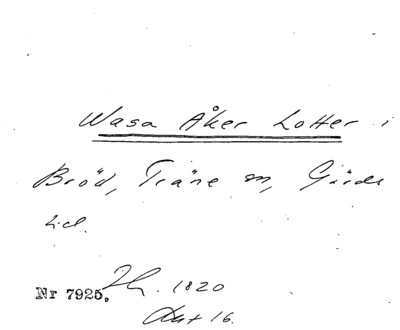 Wasa Åker Lotter i
Bröd, Träne m, Gärds
Nr 7925. Th. 1820
Akt 16.